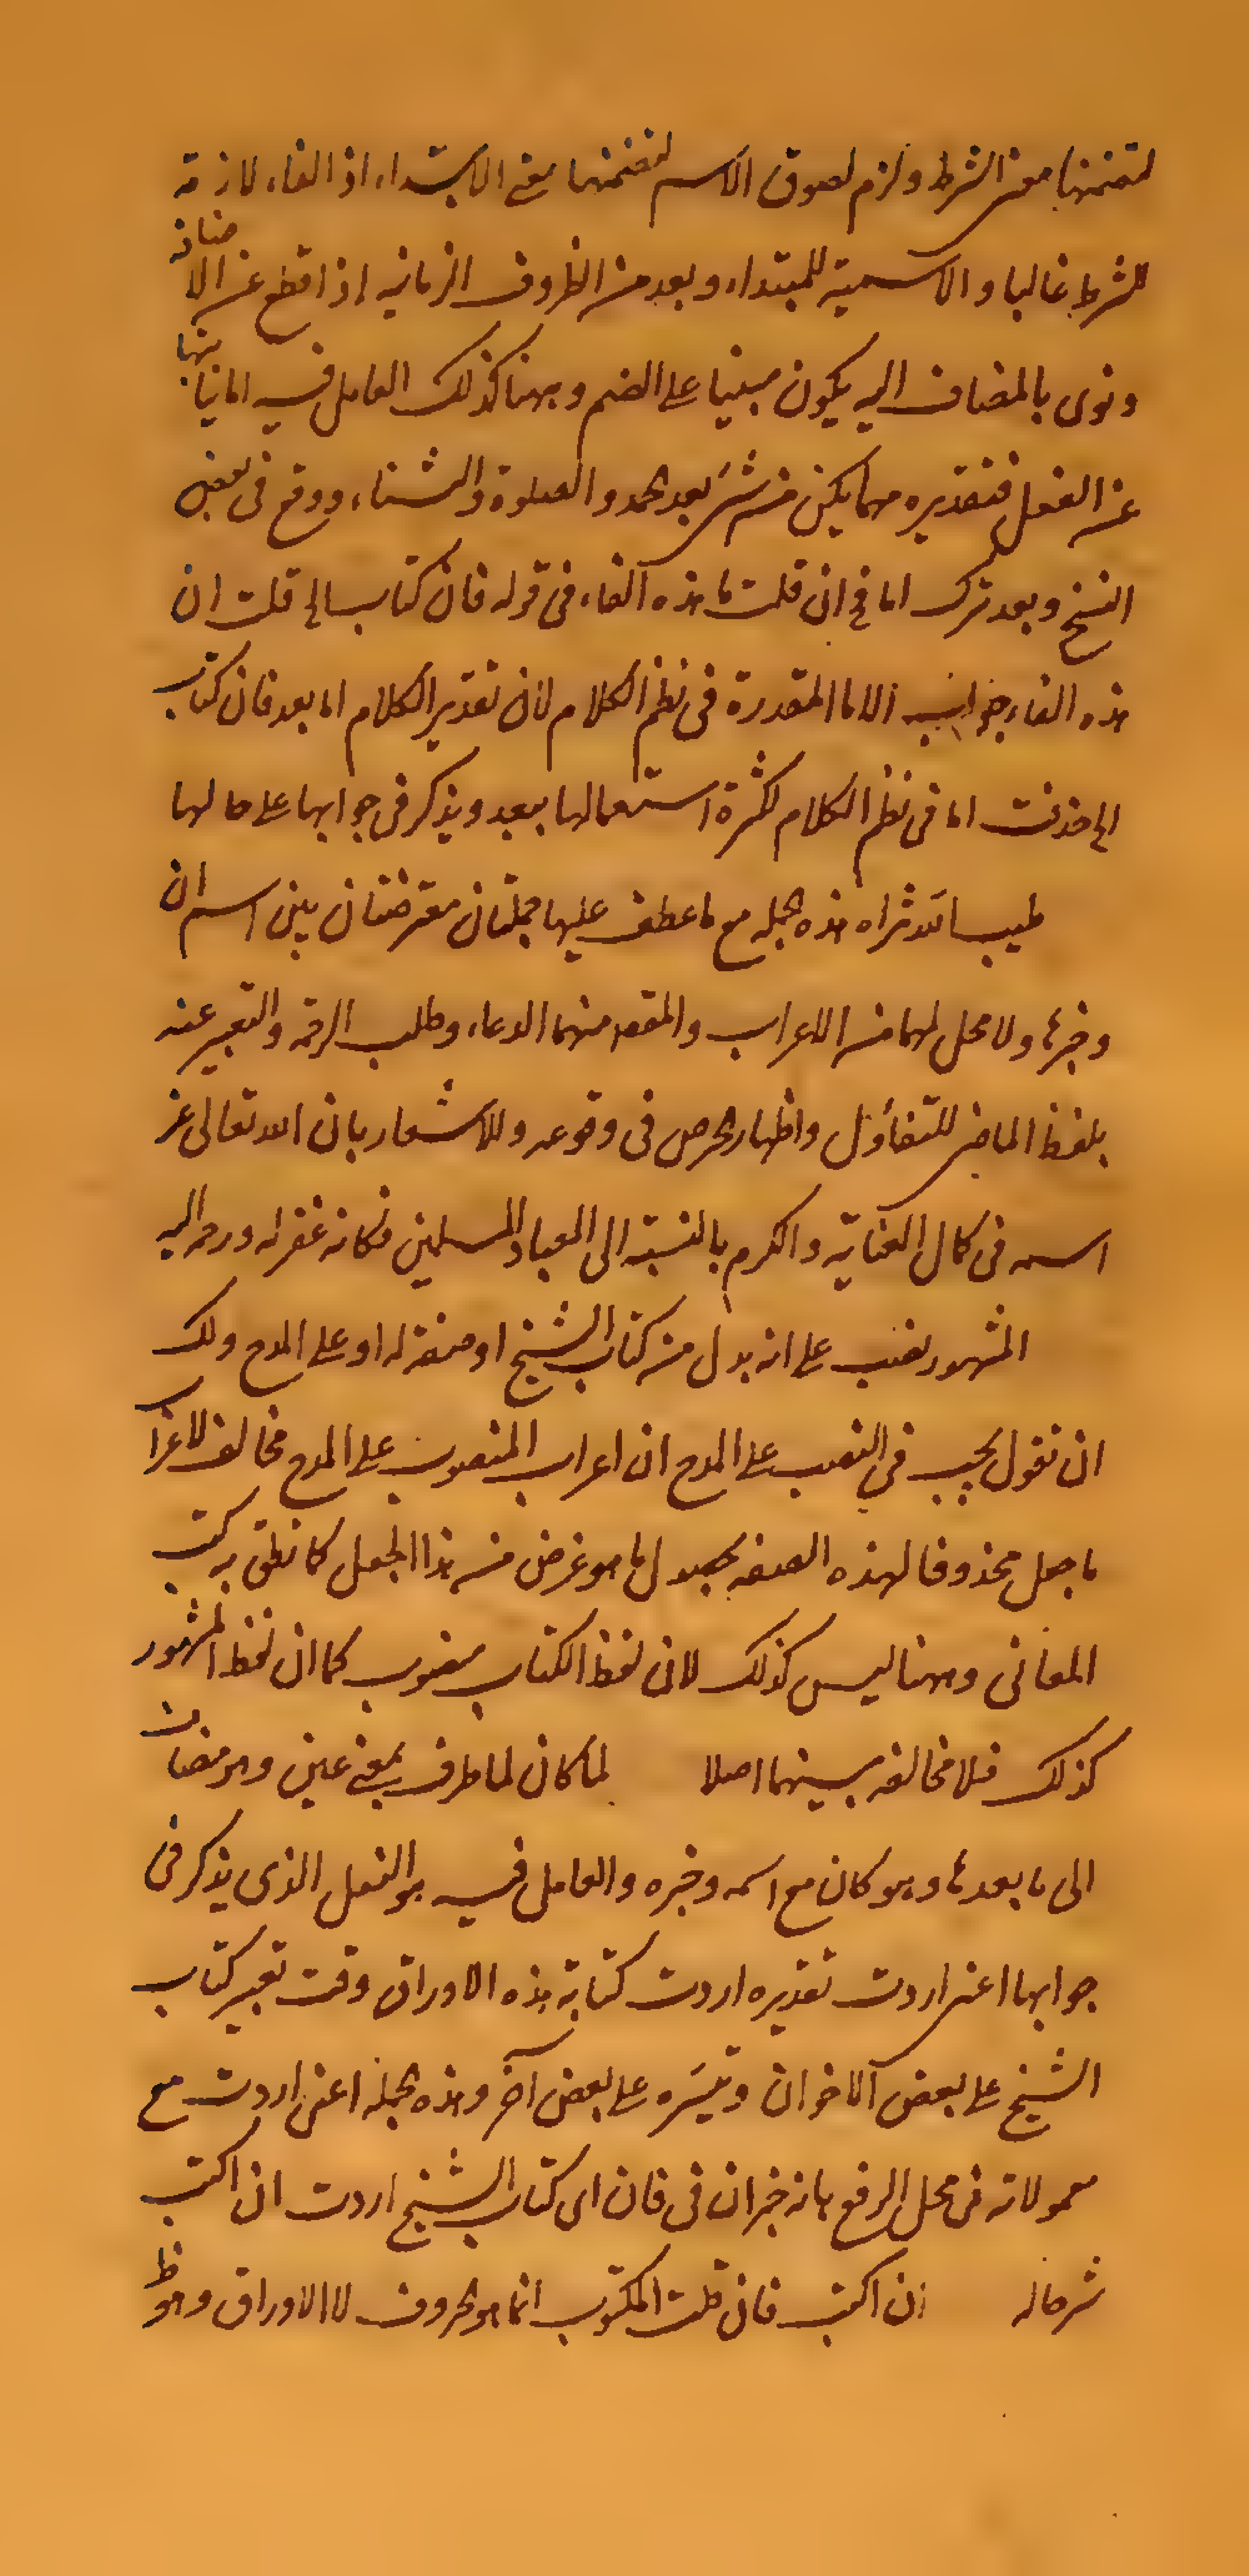 لتضمنها معنى الشرط ولزم لصوق الاسم لتضمنها معنى الابتداء اذ الفاء لازمة
للشرط غالبا والاسمية للمبتداء وبعد من الظروف الزمانيه اذا قطع عن الاضافة
ونوى بالمضاف اليه يكون مبنيا على الضم وههنا كذلك العامل فيه اما نيابتها
عن الفعل فتقديره مهما يكن من شئ بعد الحمد والصلوة والثناء ووقع فى بعض
النسخ وبعد بترك اما فح ان قلت ما هذه الفاء فى قوله فان كتاب الخ قلت ان
هذه الفاء جواب الاما المقدرة فى نظم الكلام لان تقدير الكلام اما بعد فان كتاب
الخ حذفت اما فى نظم الكلام لكثرة استعمالها ببعد ويذكر فى جوابها على حالها
طيب الله ثراه هذه الجمله مع ما عطف عليها جملتان معترضتان بين اسم ان
وخبرها ولا محل لهما من الاعراب والمقصد منهما الدعاء وطلب الرحمة والتعبير عنه
بلفظ الماضى للتفاؤل واظهار الحرص فى وقوعه وللاشعار بان الله تعالى عز
اسمه فى كمال العناية والكرم بالنسبة الى العباد المسلمين فكانه غفر له ورحم اليه
المشهور نصب على انه بدل من كتاب الشيخ او صفة له او على المدح ولك
ان تقول يجب فى النصب على المدح ان اعراب المنصوب على المدح مخالف لاعراب
ما جعل محذوفا لهذه الصفه بحصول ما هو غرض من هذا الجعل كما نطق به كتب
المعانى وههنا ليس كذلك لان لفظ الكتاب منصوب كما ان لفظ المشهور
كذلك فلا مخالفه بينهما اصلا لما كان لما ظرف بمعنى حين وهو مضاف
الى ما بعدها وهو كان مع اسمه وخبره والعامل فيه هو الفعل الذى يذكر فى
جوابها اعنى اردت تقديره اردت كتابة هذه الاوراق وقت تعبير كتاب
الشيخ على بعض الاخوان وتيسره على بعض آخر وهذه الجمله اعنى اردت مع
معمولاته فى محل الرفع بانه خبر ان فى فان اى كتاب الشيخ اردت ان اكتب
شرحا له ان اكتب فان قلت المكتوب انما هو الحروف لا الاوراق وهو ظ